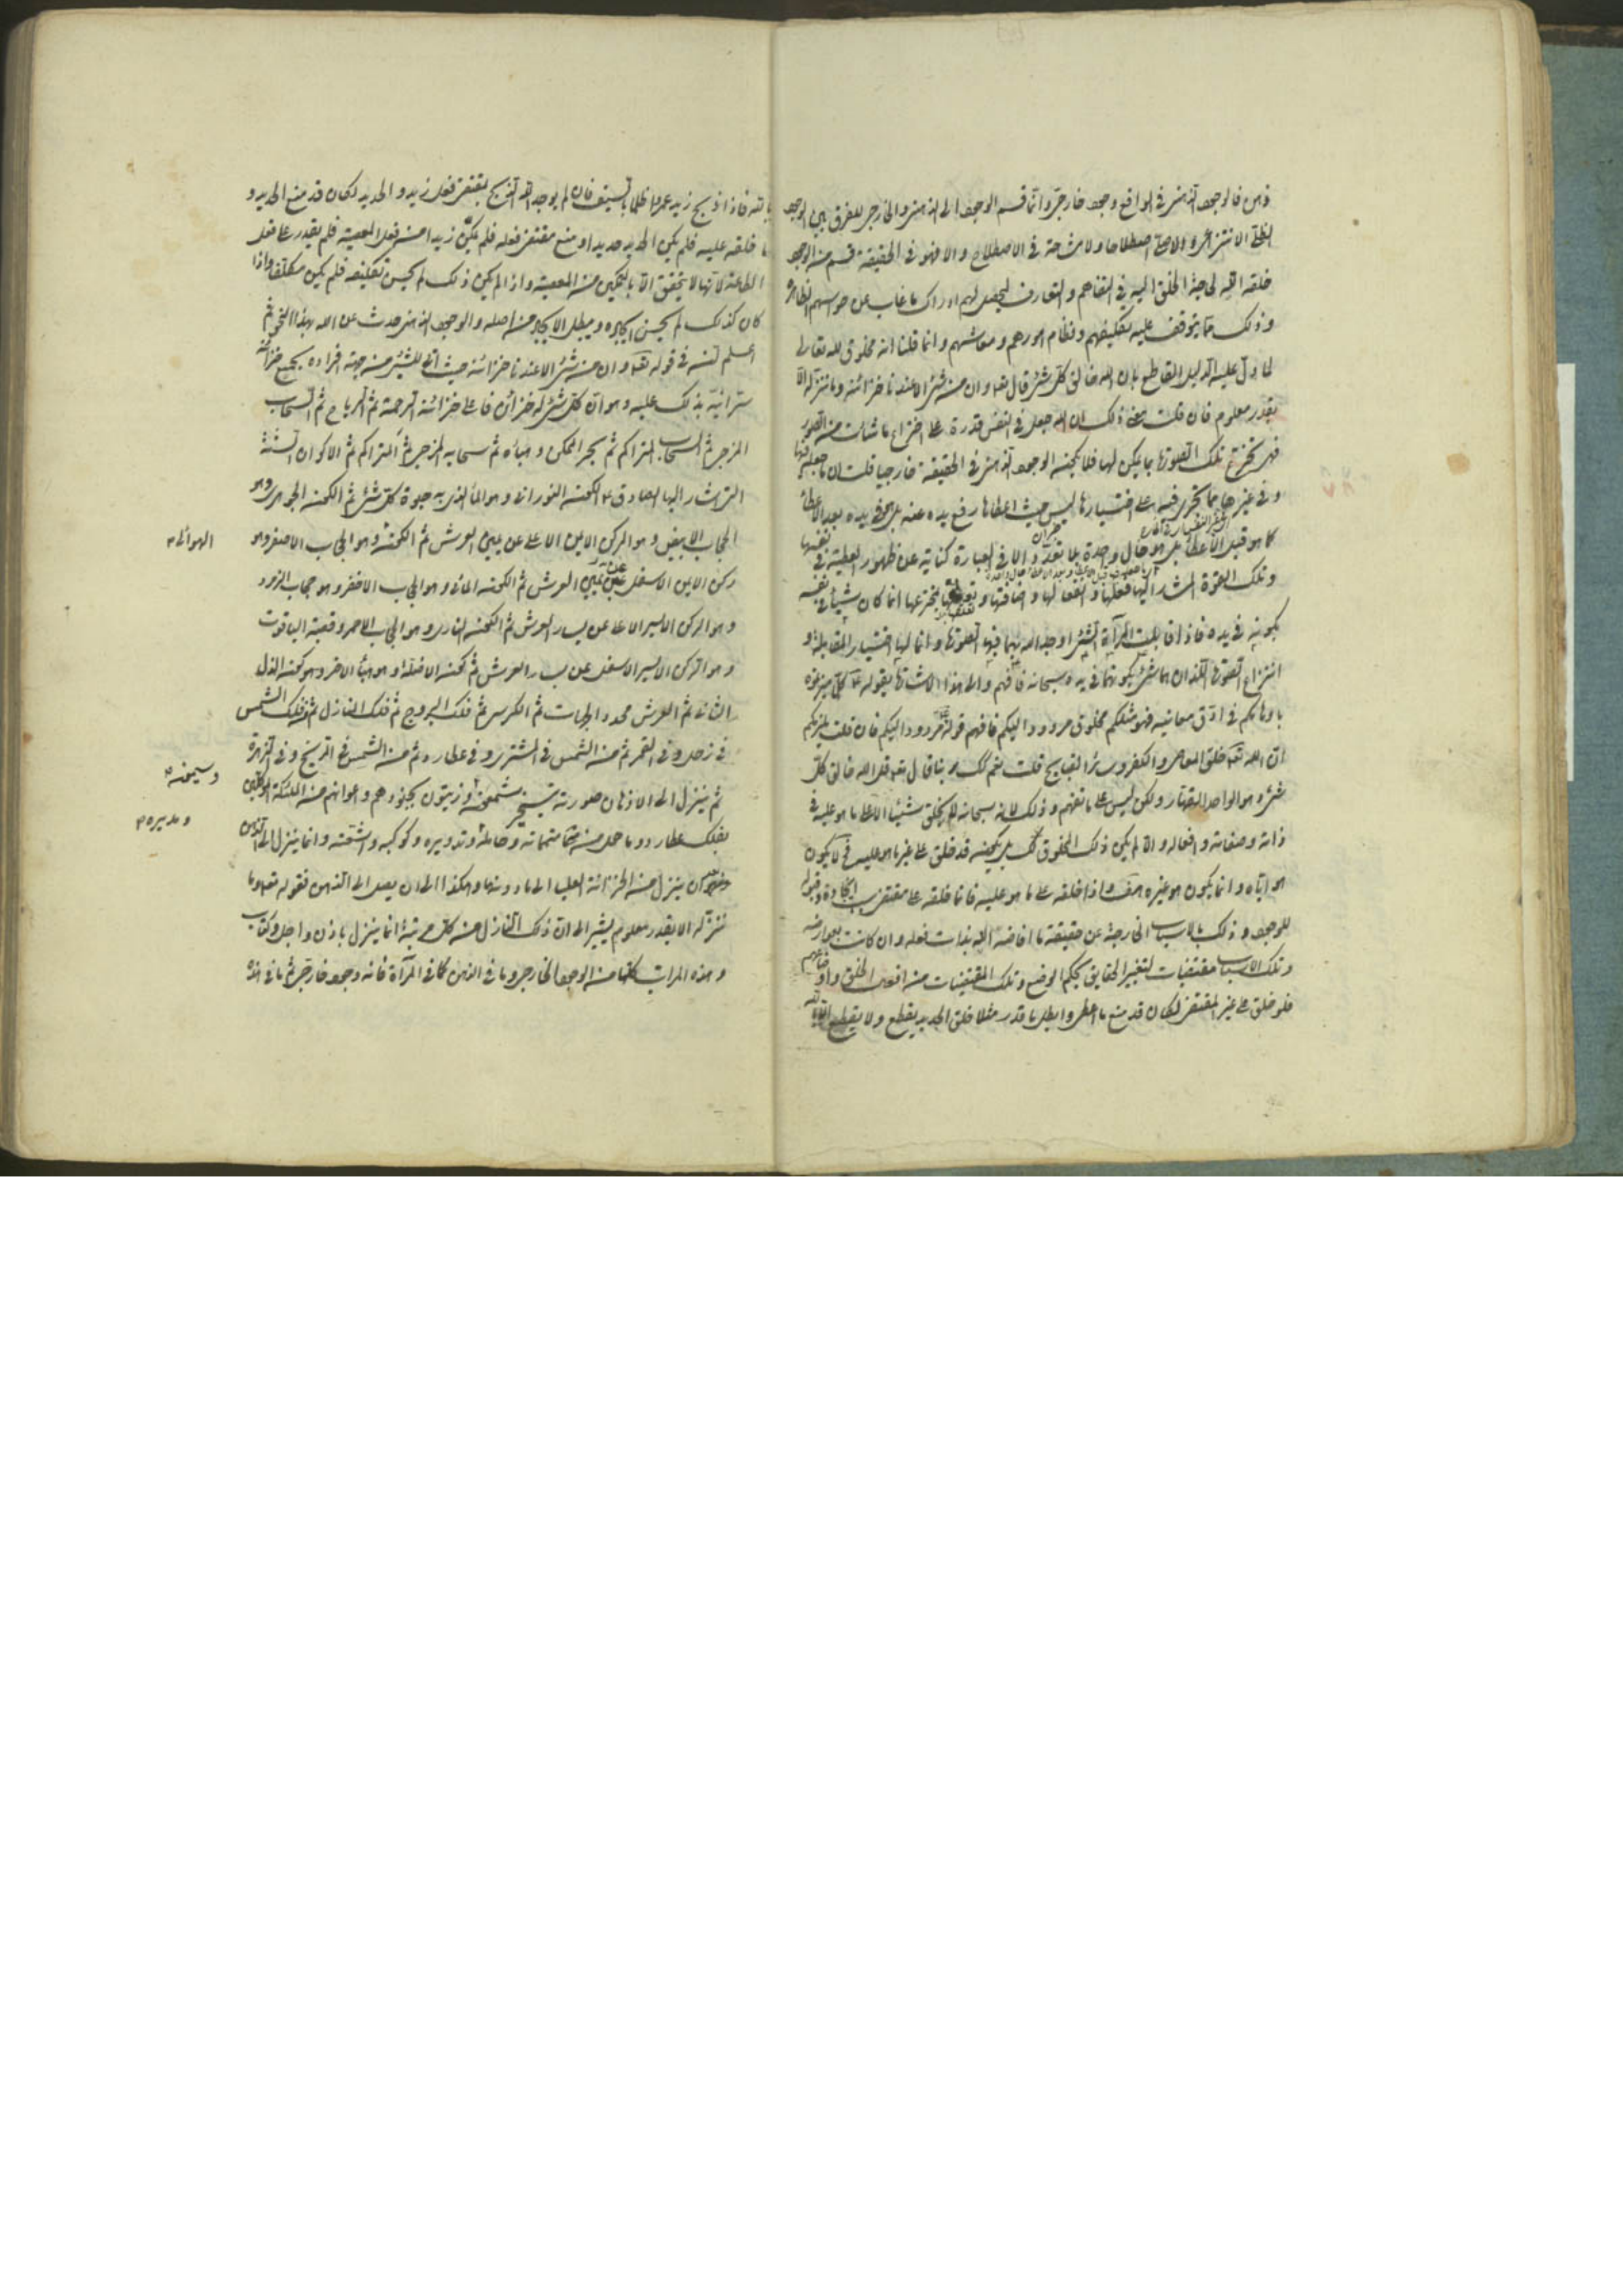 ذهن فالوجود الذهني في الواقع وجود خارجي وانما قسم الوجود الى الذهني والخارجي للفرق بين الوجود
الظلي الانتزاعي والاصلي اصطلاحا ولا مشاحة في الاصطلاح والا فهو في الحقيقة قسم من الوجود
خلقه الله لحاجة الخلق اليه في التفاهم والتعارف ليحصل لهم ادراك ما غاب عن حواسهم الظاهرة
وذلك مما يتوقف عليه تكليفهم ونظام امورهم ومعاشهم وانما قلنا انه مخلوق لله تعالى
لما دل عليه الدليل القاطع بان الله خالق كل شئ قال تعه وان من شئ الا عندنا خزائنه وما ننزله الا
بقدر معلوم فان قلت معنى ذلك ان الله جعل في النفس قدرة على اختراع ما شاءت من الصور
فهي تخترع تلك الصورة بما يمكن لها فلا يكون الوجود الذهني في الحقيقة خارجيا قلت ان ما جعله فيها
وفي غيرها مما تجري فيه على اختيارها ليس حيث اعطاها رفع يده عنه بل هو في يده بعد الاعطاء
كما هو قبل الاعطاء بل هو حال واحدة بلا تعدد والا في العبارة كناية عن ظهور العطية في نفسها
وتلك القوة المشار اليها فعلها و انفعالها و اضافتها و تخترعها انما كان شيئا في نفسه
بكونه في يده فاذا قابلت المرآة الشئ اوجد الله بهما فيها الصورة وانما لها اختيار المقابلة و
انتزاع الصورة اللذان هما شئ بكونهما في يده سبحانه فافهم والى هذا الاشارة بقوله ع كل ما ميزتموه
باوهامكم في ادق معانيه فهو مثلكم مخلوق مردود اليكم فافهم قوله مردود اليكم فان قلت يلزمكم
ان الله تعه خلق المعاصي والكفر وسائر القبايح قلت نعم كما قال تعه قل الله خالق كل
شئ وهو الواحد القهار ولكن ليس على ما تفهم وذلك لانه سبحانه لم يخلق شيئا الا على ما هو عليه في
ذاته وصفاته وافعاله والا لم يكن ذلك المخلوق بل يكون قد خلق على غير ما هو عليه فلا يكون
هو اياه وانما يكون هو غيره هف واذا خلقه على ما هو عليه فانما خلقه على مقتضى ايجاده وقبوله
للوجود وذلك بالاسباب الخارجة عن حقيقة ما افاضه الله بذات فعله وان كانت بعوارضه
وتلك الاسباب مقتضيات لتغيير الحقايق بحكم الوضع وتلك المقتضيات من افعال الخلق واوضاعهم
فلو خلق على غير المقتضى لكان قد منع ما اعطى وابطل ما قدر مثلا خلق الحديد يقطع ولا يقطع الا بالله
بالله فاذا ذبح زيد عمرا ظلما بالسيف فان لم يوجد الله الذبح بمقتضى فعل زيد والحديد لكان قد منع الحديد و
ما خلقه عليه فلم يكن الحديد حديدا ومنع مقتضى فعله فلم يكن زيدا من فعل المعصية فلم يقدر على فعل
الطاعة لانها لا تتحقق الا بالتمكن من المعصية واذا لم يكن ذلك لم يحسن تكليفه فلم يكن مكلفا واذا
كان كذلك لم يحسن ايجاده ويبطل الايجاد من اصله والوجود الذهني حدث عن الله بهذا النحو ثم
اعلم انه في قوله تعه وان من شئ الا عندنا خزائنه حيث اتى للشئ من جهة افراده بجمع خزائن
سرا نبه بذلك عليه وهو ان كل شئ له خزائن فاعلى خزائنه الرحمة ثم الرياح ثم السحاب
المزجى ثم السحاب المتراكم ثم بحر الممكن و هباءه ثم سحابه المزجى ثم المتراكم ثم الاكوان الستة
التي اشار اليها الصادق ع الكون النوراني وهو الماء الذي به حيوة كل شئ ثم الكون الجوهري وهو
الحجاب الابيض وهو الركن الايمن الاعلى عن يمين العرش ثم الكون وهو الحجاب الاصفر وهو
الهوائي ٣
ركن الايمن الاسفل عن يمين العرش ثم الكون المائي وهو الحجاب الاخضر وهو حجاب الزمرد
وهو الركن الايسر الاعلى عن يسار العرش ثم الكون الناري وهو الحجاب الاحمر وقصبة الياقوت
وهو الركن الايسر الاسفل عن يسار العرش ثم كون الاظلة وهو هباء الاخر وهو كون الذر
الثاني ثم العرش محدد الجهات ثم الكرسي ثم فلك البروج ثم فلك المنازل ثم فلك الشمس
في زحل وفي القمر ثم من الشمس في المشتري وفي عطارد ثم من الشمس في المريخ وفي الزهرة
ثم ينزل الى الاذهان صورته بتسخير شمعون وزيتون بجنودهم واعوانهم من الملئكة الموكلين
وسيمون ٥
بفلك عطارد وما حمل من متمماته وحامله وتدويره وكوكبه واشعته وانما ينزل الى الذهن
ومديره ٣
بان ينزل من الخزانة العليا الى ما دونها وهكذا الى ان يصل الى الذهن فقوله تعه وما
ننزله الا بقدر معلوم يشير الى ان ذلك النازل من كل مرتبة انما ينزل باذن واجل وكتاب
وهذه المراتب كلها من الوجود الخارجي وما في الذهن كما في المرآة فانه وجود خارجي ثم ما في